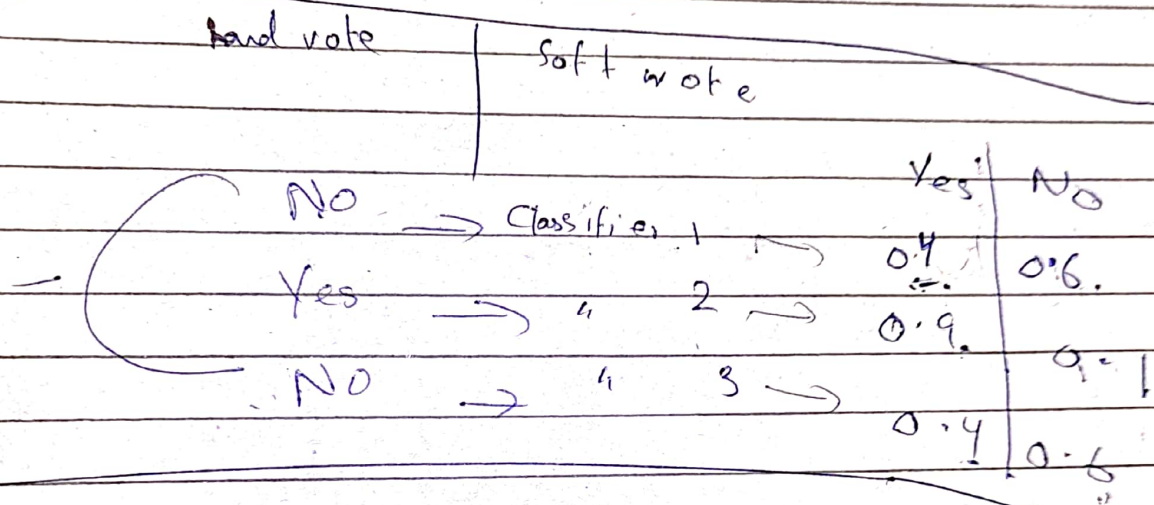 Hard vote Soft vote
Yes No
No → Classifier 1 → 0.4 0.6.
Yes → " 2 → 0.9. 0.1
No → " 3 → 0.4 0.6